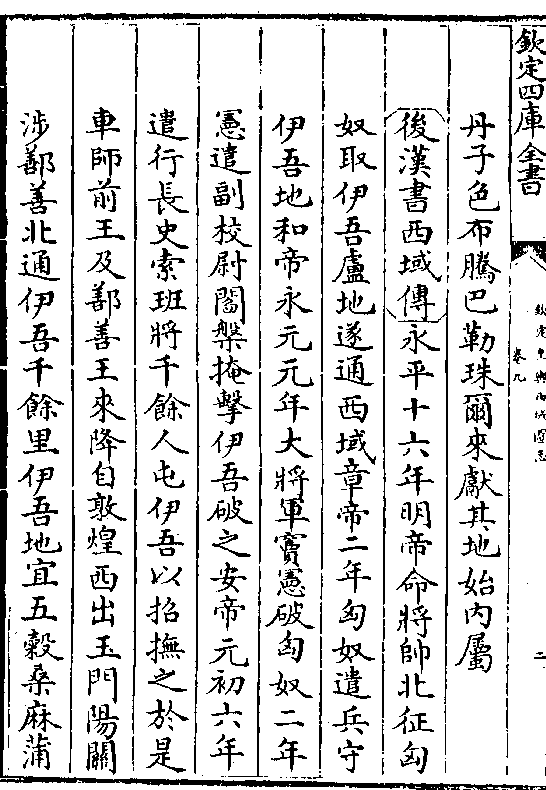 欽定四庫全書
欽定皇輿西域圖志
卷九
二
丹子色布騰巴勒珠爾來獻其地始内屬
後漢書西域傳永平十六年明帝命將帥北征匈
奴取伊吾盧地遂通西域章帝二年匈奴遣兵守
伊吾地和帝永元元年大將軍竇憲破匈奴二年
憲遣副校尉閻槃掩擊伊吾破之安帝元初六年
遣行長史索班將千餘人屯伊吾以招撫之於是
車師前王及鄯善王來降自敦煌西出玉門陽關
涉鄯善北通伊吾千餘里伊吾地宜五穀桑麻蒲